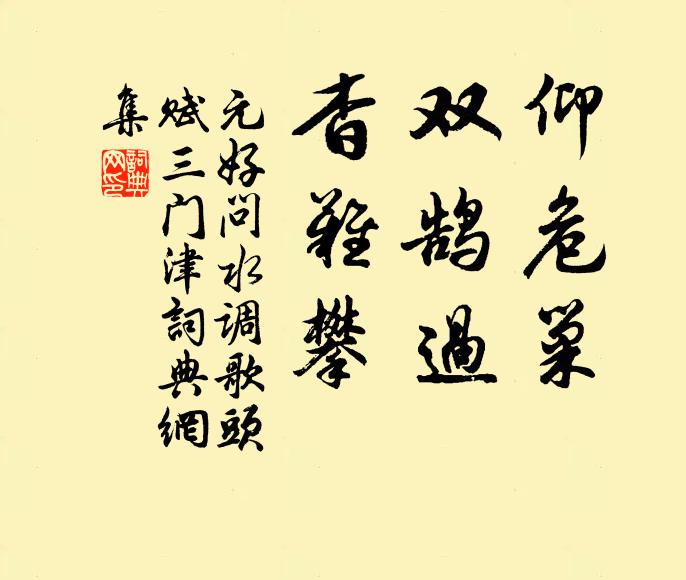 仰危巢
双鵠過
杳難攀
元好问水调歌頭
赋三门津詞典網
集
詞典
网印